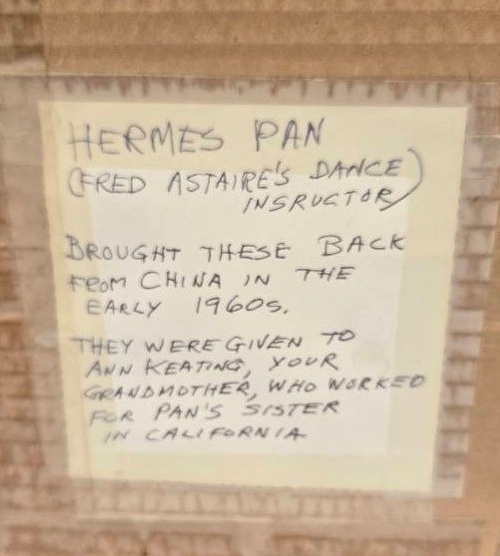 HERMES PAN
(FRED ASTAIRE'S DANCE
INSRUCTOR)
BROUGHT THESE BACK
FROM CHINA IN THE
EARLY 1960s.
THEY WERE GIVEN TO
ANN KEATING, YOUR
GRANDMOTHER, WHO WORKED
FOR PAN'S SISTER
IN CALIFORNIA